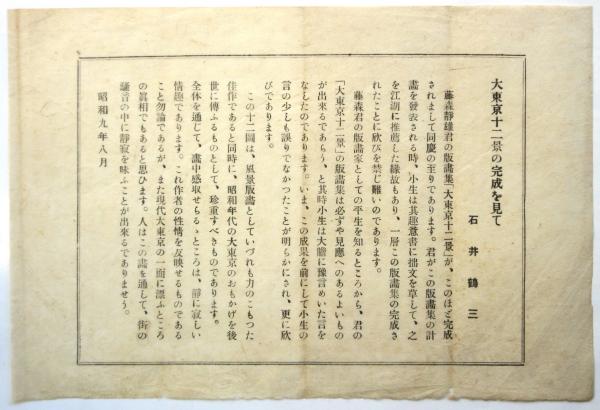 大東京十二景の完成を見て
石井鶴三
藤森靜雄君の版畵集「大東京十二景」が、このほど完成
されまして同慶の至りであります。君がこの版畵集の計
畵を發表される時、小生は其趣意書に拙文を草して、之
を江湖に推薦した緣故もあり、一層この版畵集の完成さ
れたことに欣びを禁じ難いのであります。
藤森君の版畵家としての平生を知るところから、君の
「大東京十二景」の版畵集は必ずや見應へのあるよいもの
が出來るであらう、と其時小生は大膽に豫言めいた言を
なしたのであります。いま、この成果を前にして小生の
言の少しも誤りでなかつたことが明らかにされ、更に欣
びであります。
この十二圖は、風景版畵としていづれも力のこもつた
佳作であると同時に、昭和年代の大東京のおもかげを後
世に傳ふるものとして、珍重すべきものであります。
全体を通じて、畵中感取せらるゝところは、靜に寂しい
情趣であります。これ作者の性情を反映せるものである
こと勿論であるが、また現代大東京の一面に漂ふところ
の眞相でもあると思ひます。人はこの畵を通して、街の
騷音の中に靜寂を味ふことが出來るでありませう。
昭和九年八月